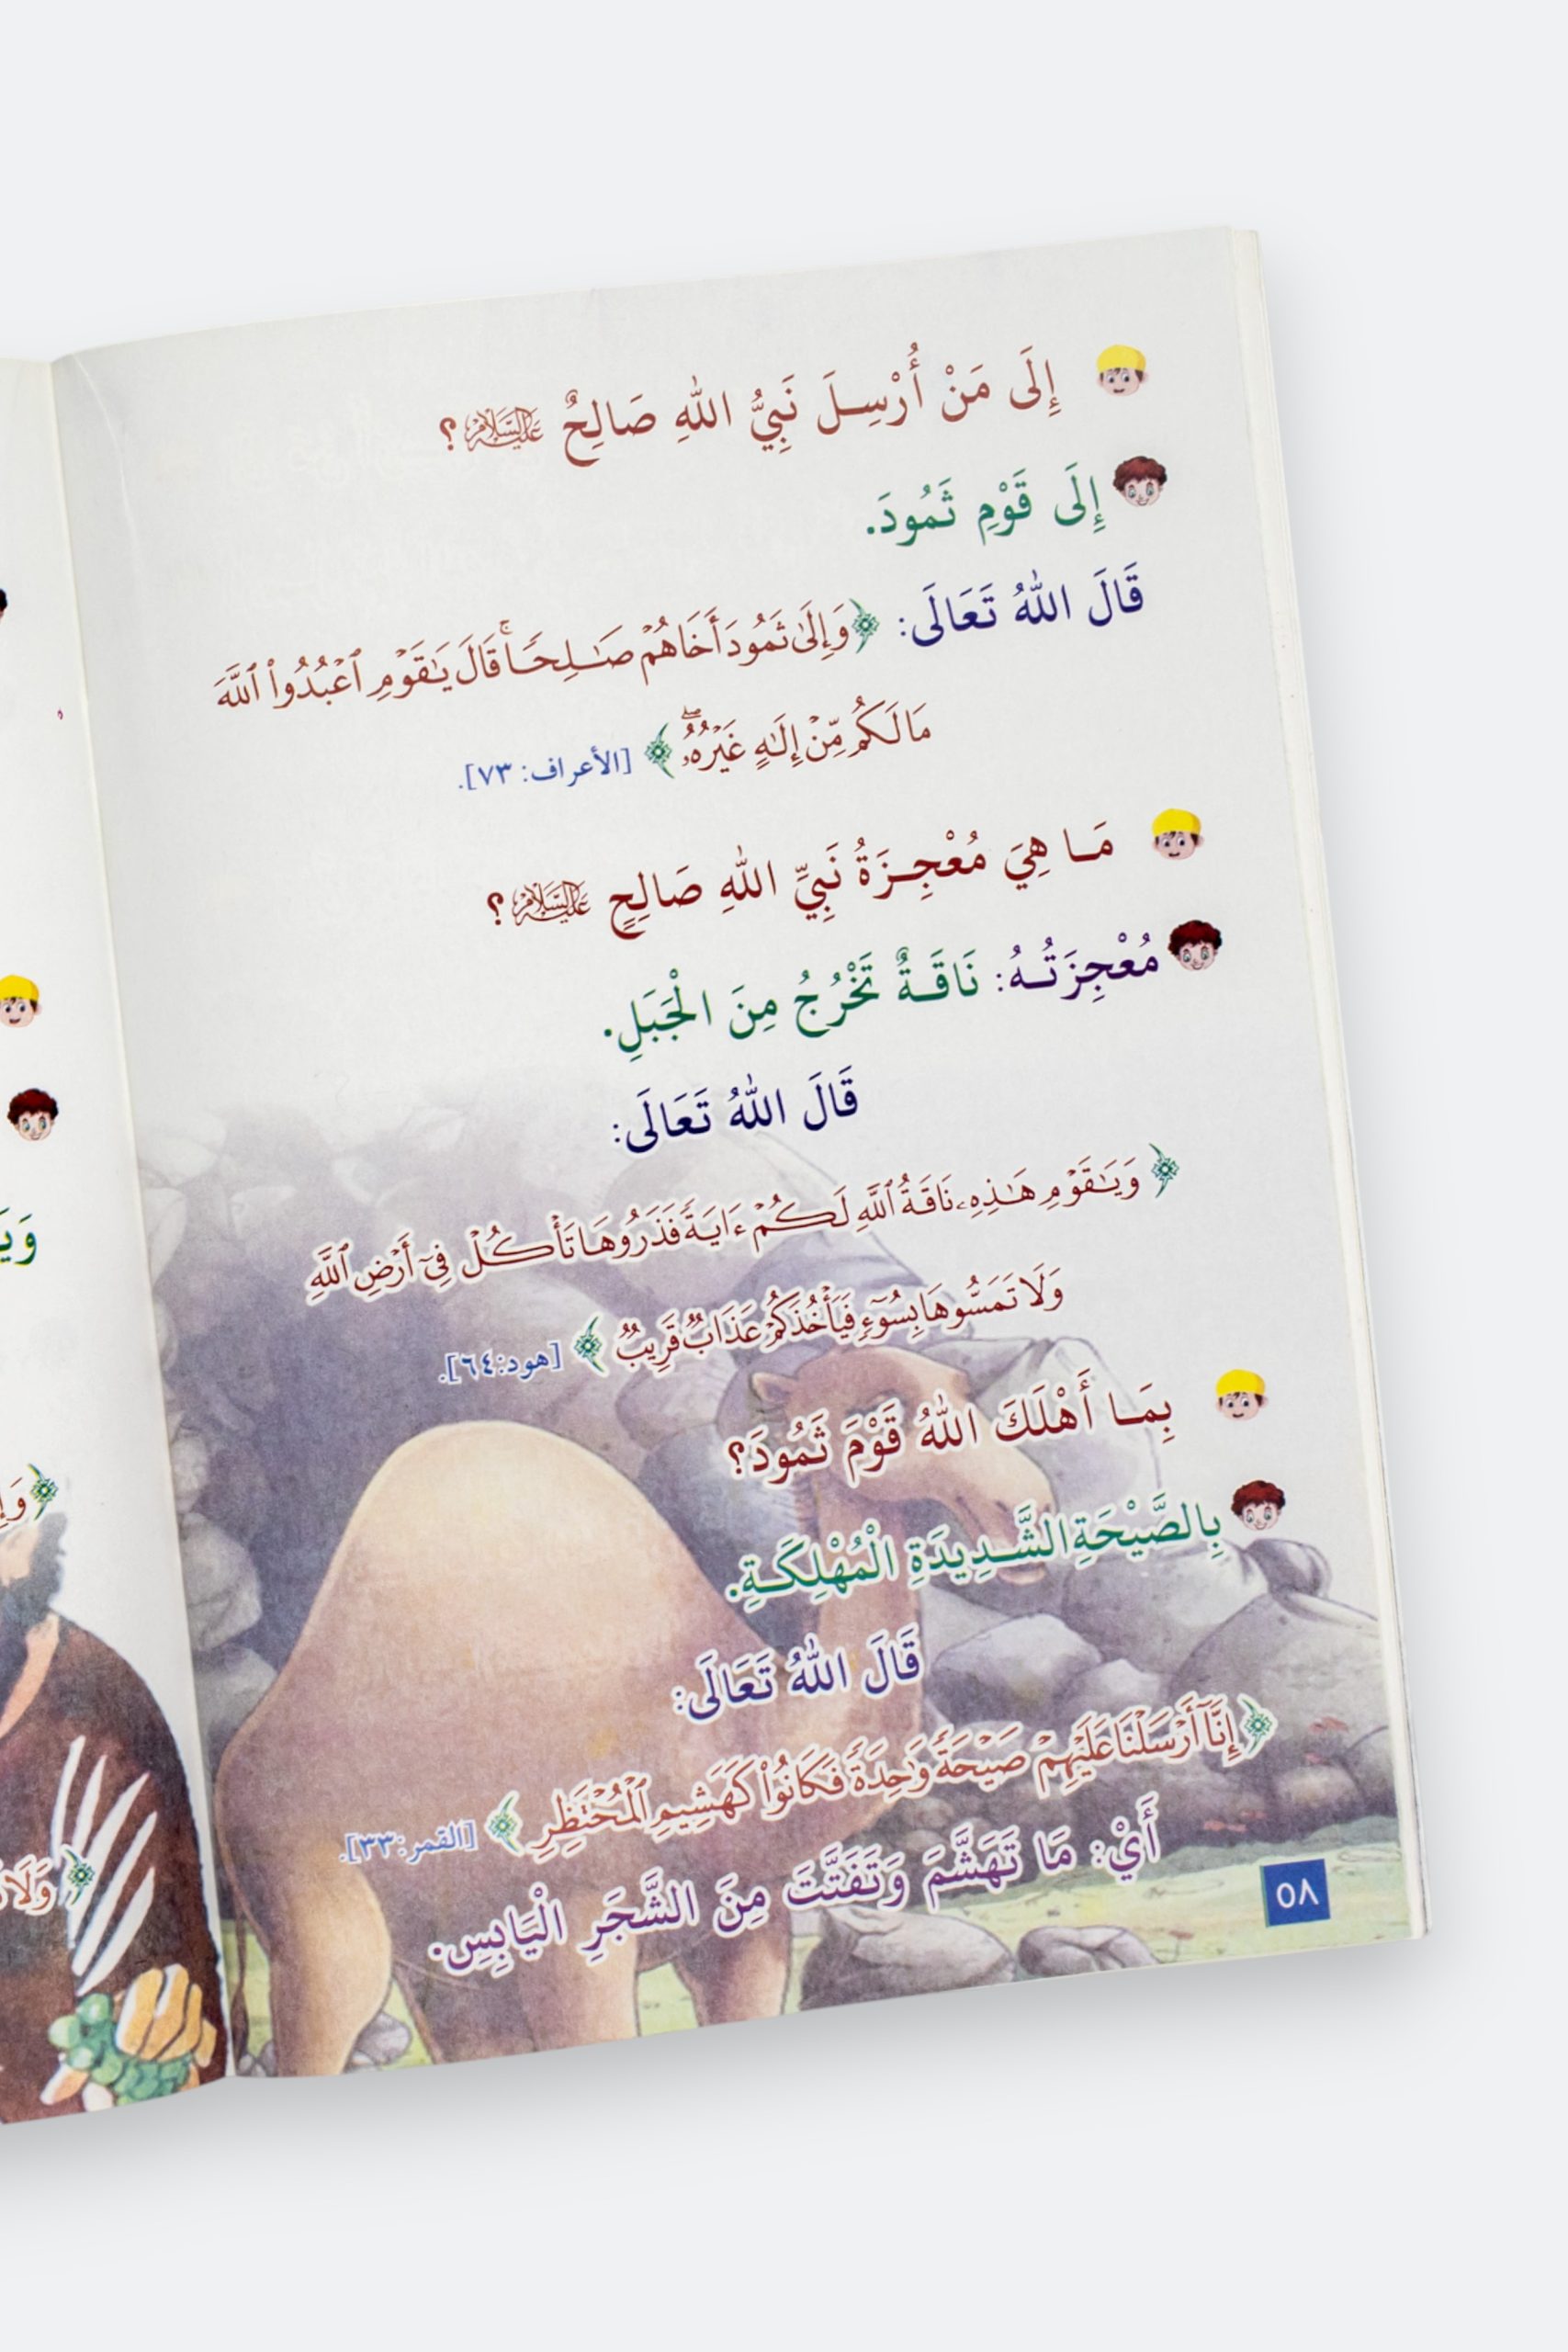 إِلَى مَنْ أُرْسِلَ نَبِيُّ اللهِ صَالِحٌ عَلَيْهِ السَّلَامُ؟
إِلَى قَوْمِ ثَمُودَ.
قَالَ اللهُ تَعَالَى: ﴿وَإِلَىٰ ثَمُودَ أَخَاهُمۡ صَٰلِحٗاۚ قَالَ يَٰقَوۡمِ ٱعۡبُدُواْ ٱللَّهَ
مَا لَكُم مِّنۡ إِلَٰهٍ غَيۡرُهُۥۖ﴾ [الأعراف: ٧٣].
مَا هِيَ مُعْجِزَةُ نَبِيِّ اللهِ صَالِحٍ عَلَيْهِ السَّلَامُ؟
مُعْجِزَتُهُ: نَاقَةٌ تَخْرُجُ مِنَ الْجَبَلِ.
قَالَ اللهُ تَعَالَى:
﴿وَيَٰقَوۡمِ هَٰذِهِۦ نَاقَةُ ٱللَّهِ لَكُمۡ ءَايَةٗ فَذَرُوهَا تَأۡكُلۡ فِيٓ أَرۡضِ ٱللَّهِ
وَلَا تَمَسُّوهَا بِسُوٓءٖ فَيَأۡخُذَكُمۡ عَذَابٞ قَرِيبٞ﴾ [هود: ٦٤].
بِمَا أَهْلَكَ اللهُ قَوْمَ ثَمُودَ؟
بِالصَّيْحَةِ الشَّدِيدَةِ الْمُهْلِكَةِ.
قَالَ اللهُ تَعَالَى:
﴿إِنَّآ أَرۡسَلۡنَا عَلَيۡهِمۡ صَيۡحَةٗ وَٰحِدَةٗ فَكَانُواْ كَهَشِيمِ ٱلۡمُحۡتَظِرِ﴾ [القمر: ٣٣].
أَيْ: مَا تَهَشَّمَ وَتَفَتَّتَ مِنَ الشَّجَرِ الْيَابِسِ.
٥٨